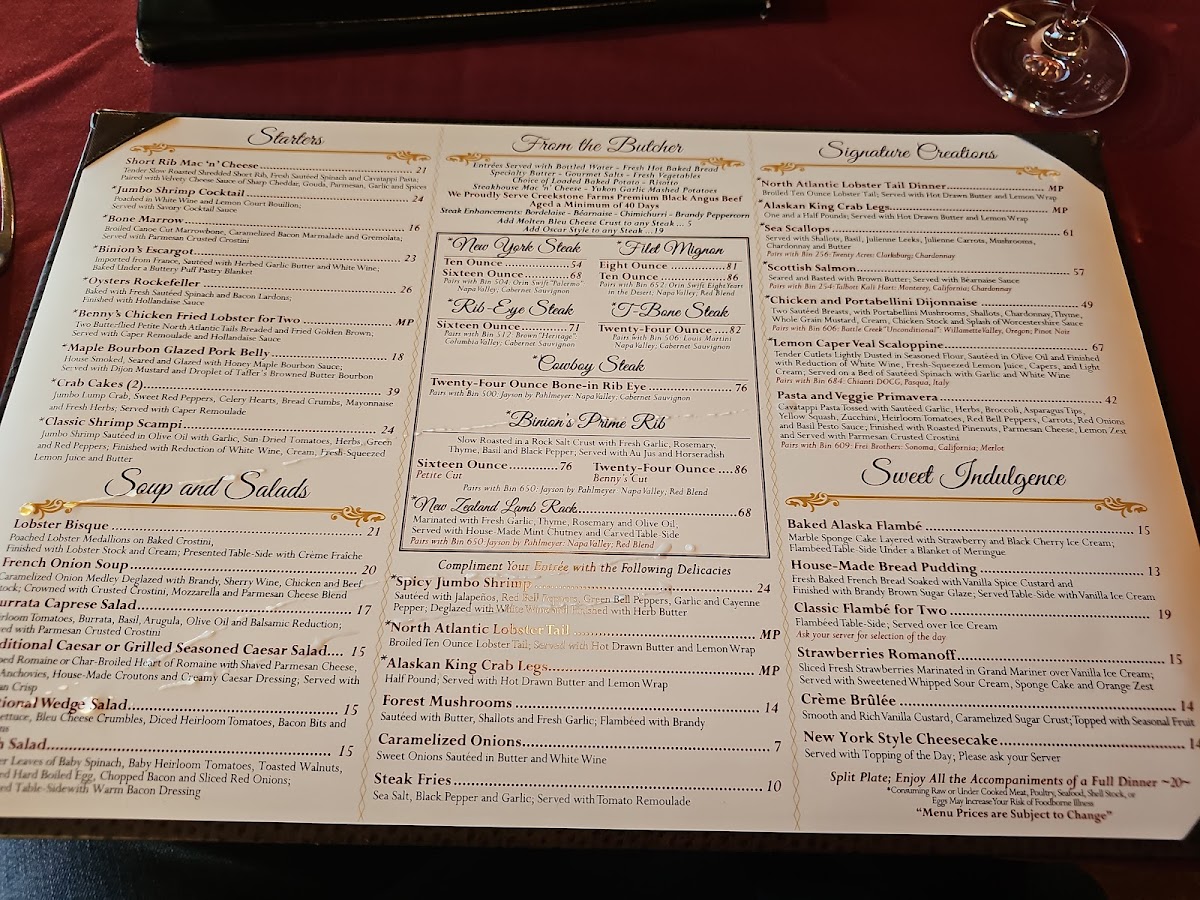 Starters
Short Rib Mac 'n' Cheese 21
Tender Slow Roasted Shredded Short Rib, Fresh Sautéed Spinach and Cavatappi Pasta;
Paired with Velvety Cheese Sauce of Sharp Cheddar, Gouda, Parmesan, Garlic and Spices
*Jumbo Shrimp Cocktail 24
Poached in White Wine and Lemon Court Bouillon;
Served with Savory Cocktail Sauce
*Bone Marrow 16
Broiled Canoe Cut Marrowbone, Caramelized Bacon Marmalade and Gremolata;
Served with Parmesan Crusted Crostini
*Binion's Escargot 23
Imported from France, Sautéed with Herbed Garlic Butter and White Wine;
Baked Under a Buttery Puff Pastry Blanket
*Oysters Rockefeller 26
Baked with Fresh Sautéed Spinach and Bacon Lardons;
Finished with Hollandaise Sauce
*Benny's Chicken Fried Lobster for Two MP
Two Butterflied Petite North Atlantic Tails Breaded and Fried Golden Brown,
Served with Caper Remoulade and Hollandaise Sauce
*Maple Bourbon Glazed Pork Belly 18
House Smoked, Seared and Glazed with Honey Maple Bourbon Sauce;
Served with Dijon Mustard and Droplet of Taffer's Browned Butter Bourbon
*Crab Cakes (2) 39
Jumbo Lump Crab, Sweet Red Peppers, Celery Hearts, Bread Crumbs, Mayonnaise
and Fresh Herbs; Served with Caper Remoulade
*Classic Shrimp Scampi 24
Jumbo Shrimp Sautéed in Olive Oil with Garlic, Sun-Dried Tomatoes, Herbs, Green
and Red Peppers; Finished with Reduction of White Wine, Cream, Fresh-Squeezed
Lemon Juice and Butter
Soup and Salads
Lobster Bisque 21
Poached Lobster Medallions on Baked Crostini,
Finished with Lobster Stock and Cream; Presented Table-Side with Crème Fraiche
French Onion Soup 20
Caramelized Onion Medley Deglazed with Brandy, Sherry Wine, Chicken and Beef
tock; Crowned with Crusted Crostini, Mozzarella and Parmesan Cheese Blend
urrata Caprese Salad 17
irloom Tomatoes, Burrata, Basil, Arugula, Olive Oil and Balsamic Reduction;
ved with Parmesan Crusted Crostini
ditional Caesar or Grilled Seasoned Caesar Salad 15
ped Romaine or Char-Broiled Heart of Romaine with Shaved Parmesan Cheese,
Anchovies, House-Made Croutons and Creamy Caesar Dressing; Served with
an Crisp
tional Wedge Salad 15
ettuce, Bleu Cheese Crumbles, Diced Heirloom Tomatoes, Bacon Bits and
ns
h Salad 15
er Leaves of Baby Spinach, Baby Heirloom Tomatoes, Toasted Walnuts,
ed Hard Boiled Egg, Chopped Bacon and Sliced Red Onions;
ed Table-Side with Warm Bacon Dressing
From the Butcher
Entrées Served with Bottled Water - Fresh Hot Baked Bread
Specialty Butter - Gourmet Salts - Fresh Vegetables
Choice of Loaded Baked Potato - Risotto
Steakhouse Mac 'n' Cheese - Yukon Garlic Mashed Potatoes
We Proudly Serve Creekstone Farms Premium Black Angus Beef
Aged a Minimum of 40 Days
Steak Enhancements: Bordelaise - Béarnaise - Chimichurri - Brandy Peppercorn
Add Molten Bleu Cheese Crust to any Steak ... 5
Add Oscar Style to any Steak ...19
*New York Steak
Ten Ounce 54
Sixteen Ounce 68
Pairs with Bin 504: Orin Swift "Palermo"
Napa Valley; Cabernet Sauvignon
*Filet Mignon
Eight Ounce 81
Ten Ounce 86
Pairs with Bin 652: Orin Swift Eight Years
in the Desert; Napa Valley, Red Blend
*Rib-Eye Steak
Sixteen Ounce 71
Pairs with Bin 512: Browne "Heritage":
Columbia Valley; Cabernet Sauvignon
*T-Bone Steak
Twenty-Four Ounce 82
Pairs with Bin 506: Louis Martini
Napa Valley; Cabernet Sauvignon
*Cowboy Steak
Twenty-Four Ounce Bone-in Rib Eye 76
Pairs with Bin 500: Jayson by Pahlmeyer: Napa Valley, Cabernet Sauvignon
*Binion's Prime Rib
Slow Roasted in a Rock Salt Crust with Fresh Garlic, Rosemary,
Thyme, Basil and Black Pepper; Served with Au Jus and Horseradish
Sixteen Ounce 76
Petite Cut
Twenty-Four Ounce 86
Benny's Cut
Pairs with Bin 650: Jayson by Pahlmeyer: Napa Valley, Red Blend
*New Zealand Lamb Rack 68
Marinated with Fresh Garlic, Thyme, Rosemary and Olive Oil,
Served with House-Made Mint Chutney and Carved Table-Side
Pairs with Bin 650: Jayson by Pahlmeyer: Napa Valley; Red Blend
Compliment Your Entrée with the Following Delicacies
*Spicy Jumbo Shrimp 24
Sautéed with Jalapeños, Red Bell Peppers, Green Bell Peppers, Garlic and Cayenne
Pepper; Deglazed with White Wine and Finished with Herb Butter
*North Atlantic Lobster Tail MP
Broiled Ten Ounce Lobster Tail; Served with Hot Drawn Butter and Lemon Wrap
*Alaskan King Crab Legs MP
Half Pound; Served with Hot Drawn Butter and Lemon Wrap
Forest Mushrooms 14
Sautéed with Butter, Shallots and Fresh Garlic; Flambéed with Brandy
Caramelized Onions 7
Sweet Onions Sautéed in Butter and White Wine
Steak Fries 10
Sea Salt, Black Pepper and Garlic; Served with Tomato Remoulade
Signature Creations
*North Atlantic Lobster Tail Dinner MP
Broiled Ten Ounce Lobster Tail; Served with Hot Drawn Butter and Lemon Wrap
*Alaskan King Crab Legs MP
One and a Half Pounds; Served with Hot Drawn Butter and Lemon Wrap
*Sea Scallops 61
Served with Shallots, Basil, Julienne Leeks, Julienne Carrots, Mushrooms,
Chardonnay and Butter
Pairs with Bin 256: Twenty Acres; Clarksburg; Chardonnay
*Scottish Salmon 57
Seared and Basted with Brown Butter; Served with Béarnaise Sauce
Pairs with Bin 254: Talbott Kali Hart: Monterey, California; Chardonnay
*Chicken and Portabellini Dijonnaise 49
Two Sautéed Breasts, with Portabellini Mushrooms, Shallots, Chardonnay, Thyme,
Whole Grain Mustard, Cream, Chicken Stock and Splash of Worcestershire Sauce
Pairs with Bin 606: Battle Creek "Unconditional": Willamette Valley, Oregon; Pinot Noir
*Lemon Caper Veal Scaloppine 67
Tender Cutlets Lightly Dusted in Seasoned Flour, Sautéed in Olive Oil and Finished
with Reduction of White Wine, Fresh-Squeezed Lemon Juice, Capers, and Light
Cream; Served on a Bed of Sautéed Spinach with Garlic and White Wine
Pairs with Bin 684: Chianti DOCG, Pasqua, Italy
Pasta and Veggie Primavera 42
Cavatappi Pasta Tossed with Sautéed Garlic, Herbs, Broccoli, Asparagus Tips,
Yellow Squash, Zucchini, Heirloom Tomatoes, Red Bell Peppers, Carrots, Red Onions
and Basil Pesto Sauce; Finished with Roasted Pinenuts, Parmesan Cheese, Lemon Zest
and Served with Parmesan Crusted Crostini
Pairs with Bin 609: Frei Brothers: Sonoma, California; Merlot
Sweet Indulgence
Baked Alaska Flambé 15
Marble Sponge Cake Layered with Strawberry and Black Cherry Ice Cream;
Flambéed Table-Side Under a Blanket of Meringue
House-Made Bread Pudding 13
Fresh Baked French Bread Soaked with Vanilla Spice Custard and
Finished with Brandy Brown Sugar Glaze; Served Table-Side with Vanilla Ice Cream
Classic Flambé for Two 19
Flambéed Table-Side; Served over Ice Cream
Ask your server for selection of the day
Strawberries Romanoff 15
Sliced Fresh Strawberries Marinated in Grand Mariner over Vanilla Ice Cream;
Served with Sweetened Whipped Sour Cream, Sponge Cake and Orange Zest
Crème Brûlée 14
Smooth and Rich Vanilla Custard, Caramelized Sugar Crust; Topped with Seasonal Fruit
New York Style Cheesecake 14
Served with Topping of the Day; Please ask your Server
Split Plate; Enjoy All the Accompaniments of a Full Dinner ~20~
*Consuming Raw or Under Cooked Meat, Poultry, Seafood, Shell Stock, or
Eggs May Increase Your Risk of Foodborne Illness
"Menu Prices are Subject to Change"